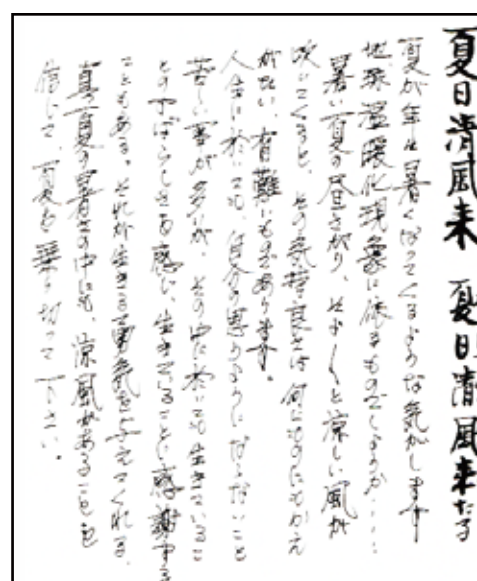 夏日清風来 夏日清風来たる
夏が年々暑くなってくるような気がします
地球温暖化現象に依るものでしょうか・・・・
暑い夏の昼さがり、そよそよと涼しい風が
吹いてくると、その気持良さは何にものにもかえ
がたい、有難いものがあります。
人生に於いても、自分の思うようにならないこと
苦しい事が多いが、その中に於いても生きているこ
との すばらしさを感じ、生きていることに感謝する
こともある。それが生きる勇気を与えてくれる。
真夏の暑さの中にも、涼風があることを
信じて、夏を乗り切って下さい。